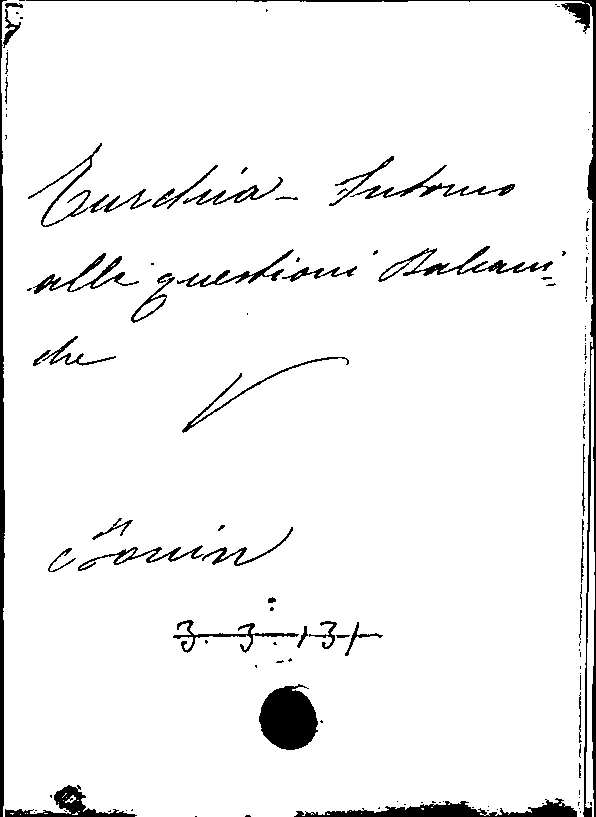 Turchia - Intorno
alle questioni Balcani=
che
3. 3. 131